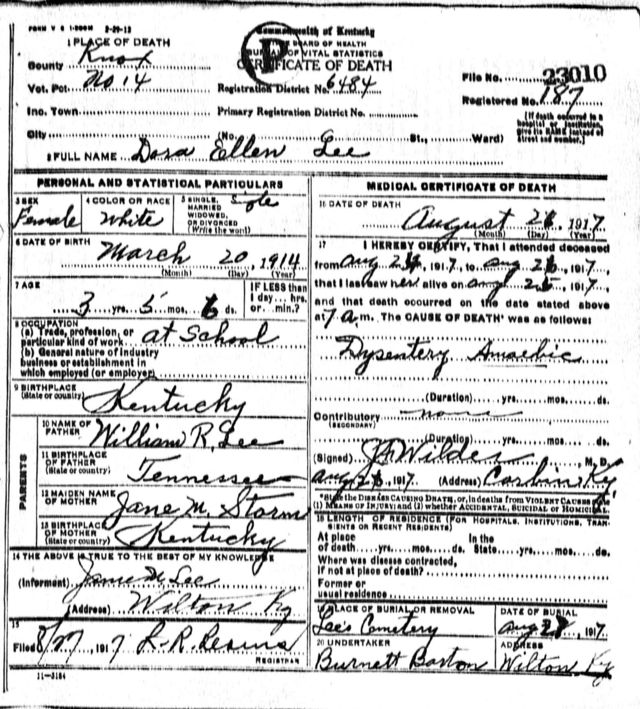 FORM V S 1-200M 2-29-12
Commonwealth of Kentucky
STATE BOARD OF HEALTH
BUREAU OF VITAL STATISTICS
CERTIFICATE OF DEATH
P
1 PLACE OF DEATH
County Knox
Vot. Pct. No 14
Registration District No. 6484
File No. 23010
Registered No. 187
Inc. Town
Primary Registration District No.
[If death occurred in a hospital or institution, give its NAME instead of street and number.]
City (No. St., Ward)
2 FULL NAME Dora Ellen Lee
PERSONAL AND STATISTICAL PARTICULARS
3 SEX Female
4 COLOR OR RACE White
5 SINGLE, MARRIED WIDOWED, OR DIVORCED (Write the word)
6 DATE OF BIRTH March 20, 1914
(Month) (Day) (Year)
7 AGE 3 yrs. 5 mos. 6 ds.
IF LESS than 1 day...hrs. or...min.?
8 OCCUPATION
(a) Trade, profession, or particular kind of work at School
(b) General nature of industry
business or establishment in
which employed (or employer)
9 BIRTHPLACE
(State or country) Kentucky
PARENTS
10 NAME OF FATHER William R, Lee
11 BIRTHPLACE OF FATHER
(State or country) Tennessee
12 MAIDEN NAME OF MOTHER Jane M, Storm
13 BIRTHPLACE OF MOTHER
(State or country) Kentucky
14 THE ABOVE IS TRUE TO THE BEST OF MY KNOWLEDGE
(Informant) M Lee
(Address) Wilton Ky
15
Filed 8/27, 1917 L. R.
REGISTRAR
11-5184
MEDICAL CERTIFICATE OF DEATH
16 DATE OF DEATH
August 26 1917
(Month) (Day) (Year)
17 I HEREBY CERTIFY, That I attended deceased
from aug 24, 1917, to aug 26, 1917,
that I last saw her alive on aug 25, 1917,
and that death occurred on the date stated above
at 7 a.m. The CAUSE OF DEATH* was as follows:
Dysentery Amoebic
(Duration) yrs. mos. ds.
Contributory none
(SECONDARY)
(Duration) yrs. mos. ds.
(Signed) Wilder, M. D.
aug 26, 1917 (Address) Corbin Ky
*State the DISEASE CAUSING DEATH, or, in deaths from VIOLENT CAUSES state
(1) MEANS OF INJURY; and (2) whether ACCIDENTAL, SUICIDAL or HOMICIDAL.
18 LENGTH OF RESIDENCE (FOR HOSPITALS, INSTITUTIONS, TRANSIENTS OR RECENT RESIDENTS)
At place of death yrs. mos. ds. In the State yrs. mos. ds.
Where was disease contracted,
if not at place of death?
Former or
usual residence
19 PLACE OF BURIAL OR REMOVAL
Lee's Cemetery
DATE OF BURIAL
aug 28, 1917
20 UNDERTAKER
Burnett Barton
ADDRESS
Wilton Ky